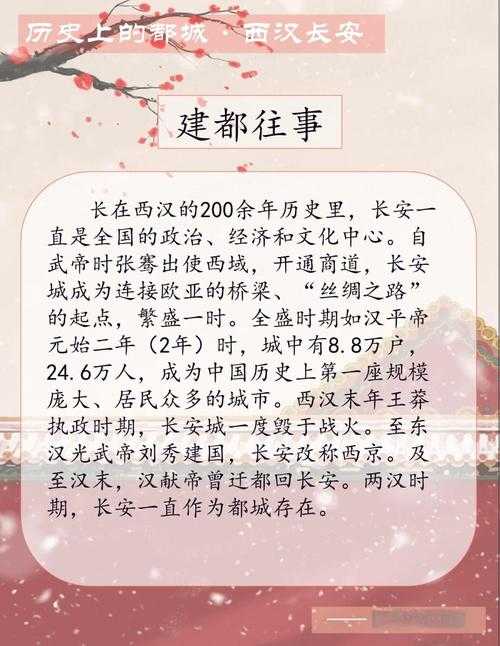 历史上的都城·西汉长安
建都往事
长在西汉的200余年历史里，长安一
直是全国的政治、经济和文化中心。自
武帝时张骞出使西域，开通商道，长安
城成为连接欧亚的桥梁、“丝绸之路”
的起点，繁盛一时。全盛时期如汉平帝
元始二年（2年）时，城中有8.8万户，
24.6万人，成为中国历史上第一座规模
庞大、居民众多的城市。西汉末年王莽
执政时期，长安城一度毁于战火。至东
汉光武帝刘秀建国，长安改称西京。及
至汉末，汉献帝曾迁都回长安。两汉时
期，长安一直作为都城存在。